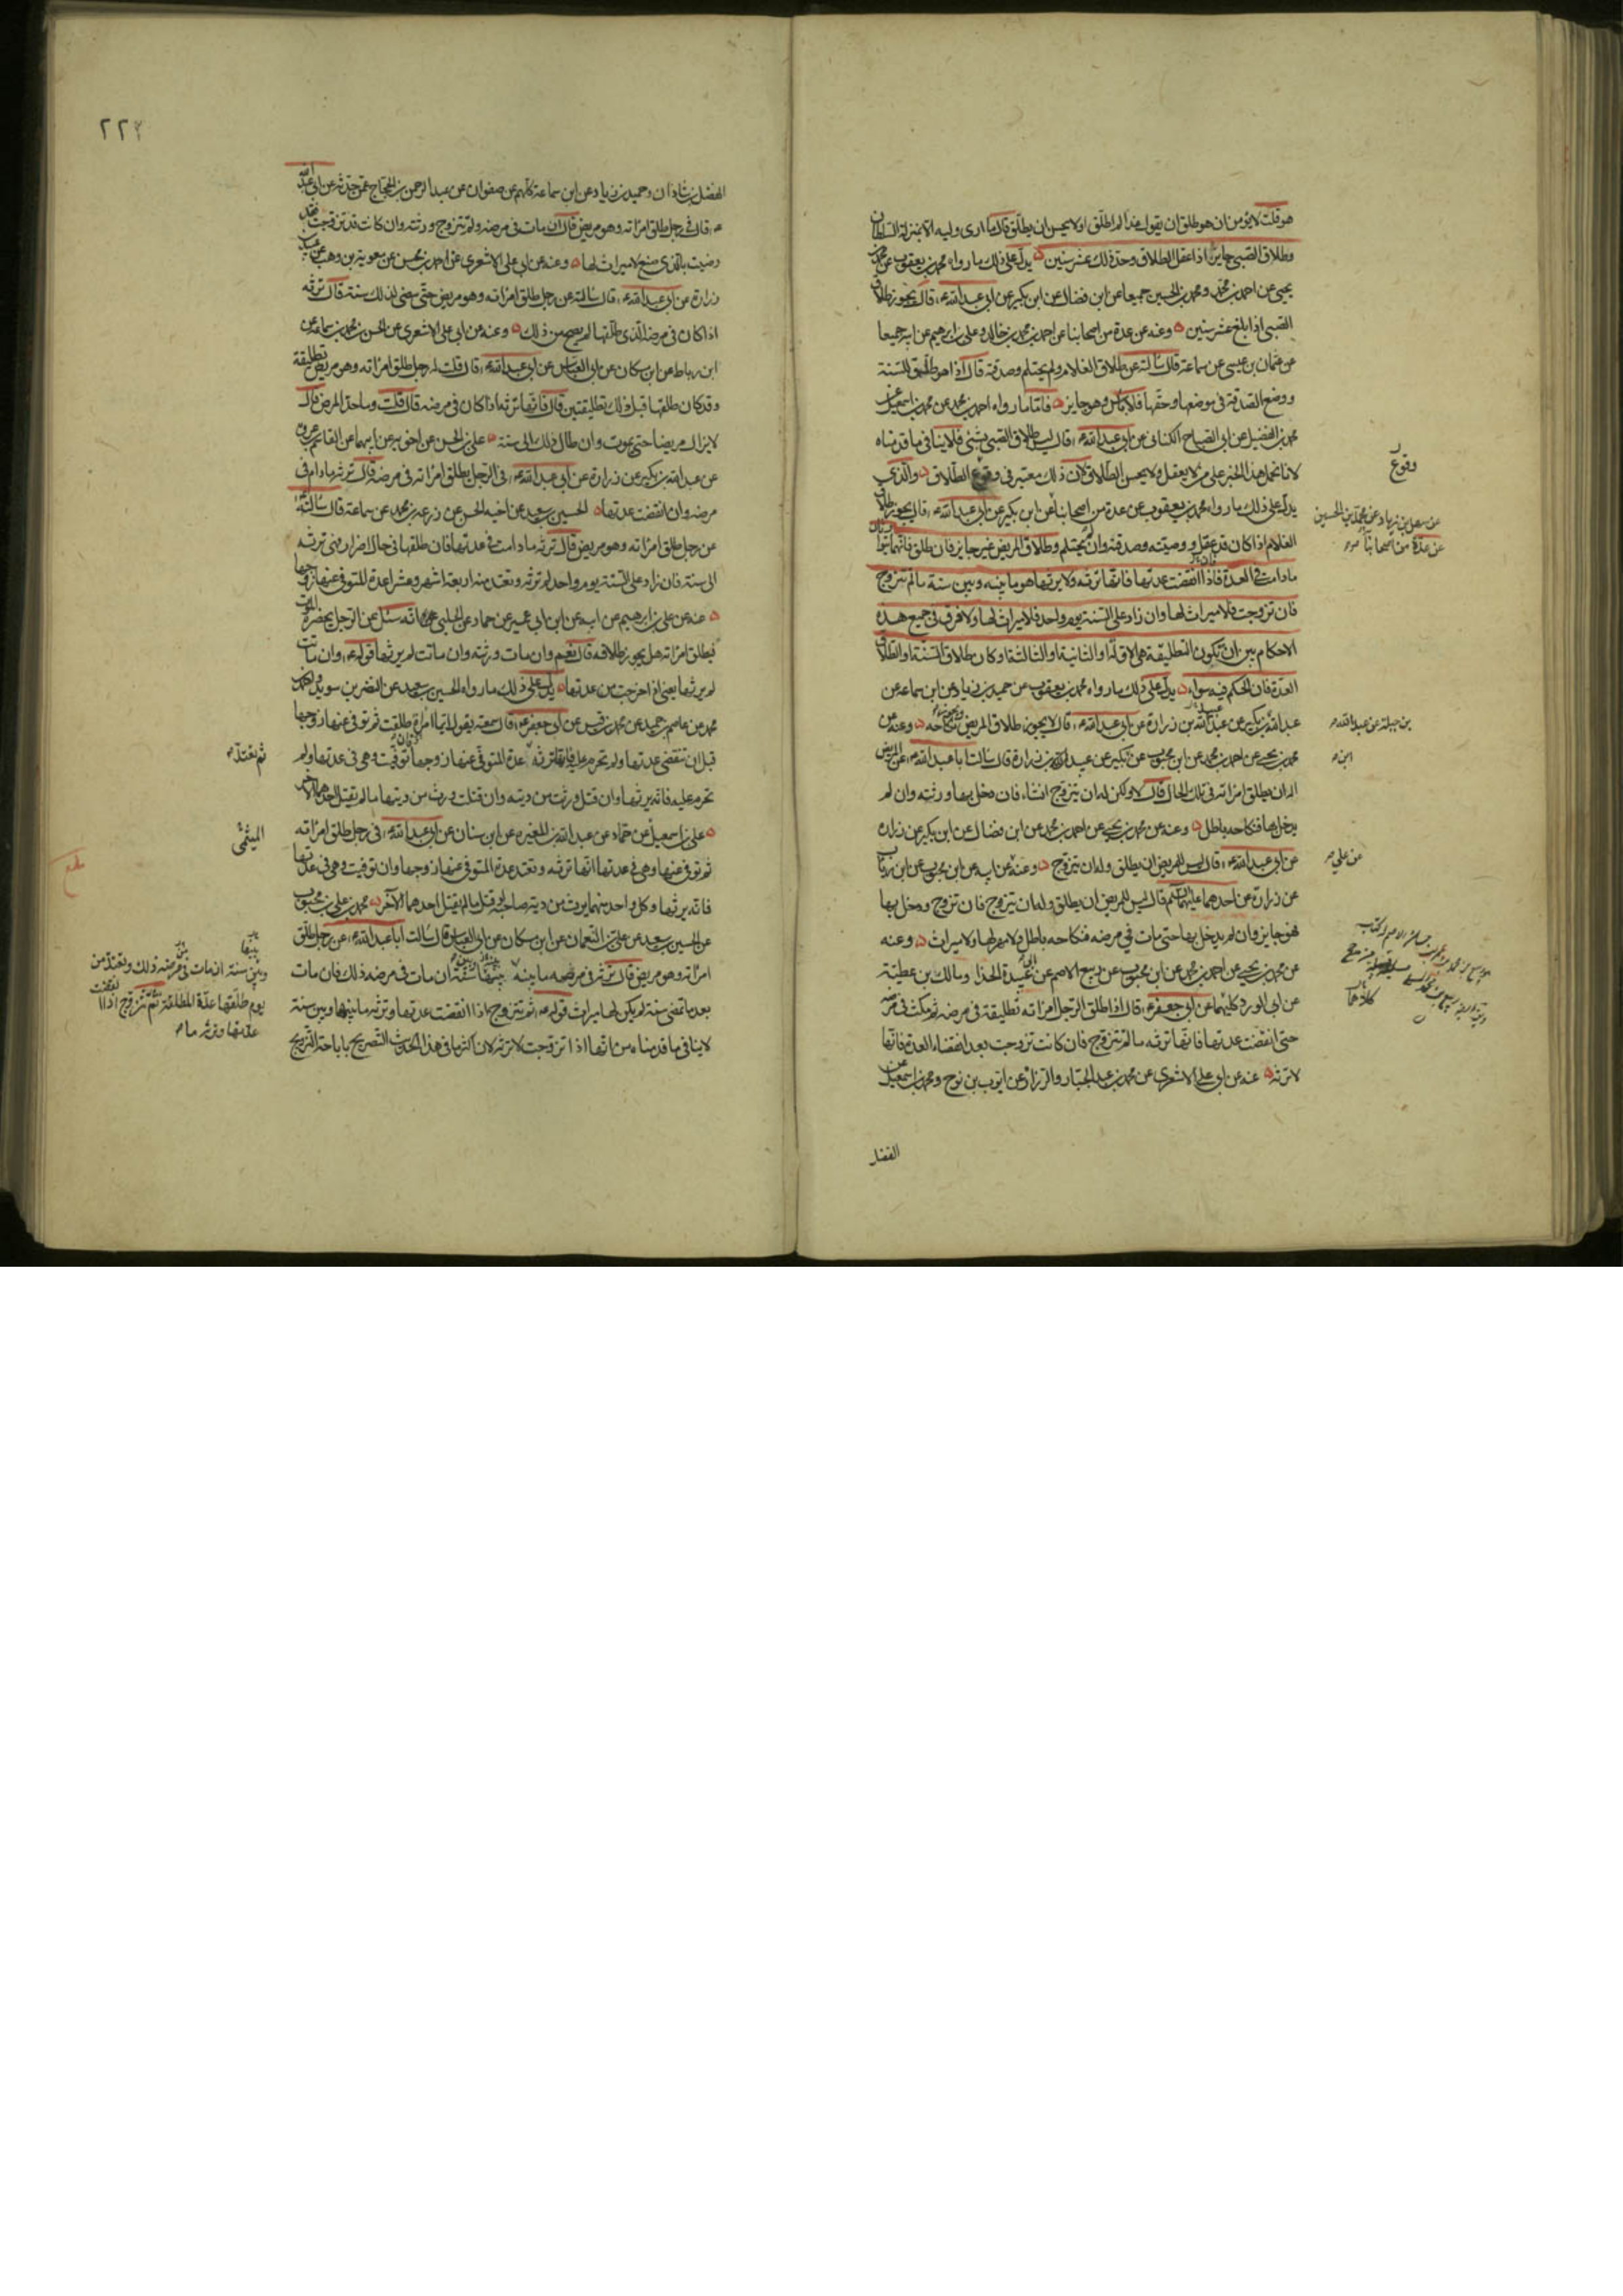 هو قلت لا يؤمن ان هو طلق ان يقول غدا لم اطلق او لا يحسن ان يطلق قال ما ارى وليه الا بمنزلة السلطان
وطلاق الصبى جايز اذا عقل الطلاق وحد ذلك عشر سنين يدل على ذلك ما رواه محمد بن يعقوب عن محمد بن
يحيى عن احمد بن محمد ومحمد بن الحسين جميعا عن ابن فضال عن ابن بكير عن ابى عبد الله ع قال يجوز طلاق
الصبى اذا بلغ عشر سنين وعنه عن عدة من اصحابنا عن احمد بن محمد بن خالد وعلى بن ابرهيم عن ابيه جميعا
عن عثمان بن عيسى عن سماعة قال سالته عن طلاق الغلام ولم يحتلم وصدقته قال اذا هو طلق للسنة
ووضع الصدقة فى موضعها وحقها فلا باس وهو جايز فاما ما رواه احمد بن محمد عن محمد بن اسمعيل عن
محمد بن الفضيل عن ابى الصباح الكنانى عن ابى عبد الله ع قال ليس طلاق الصبى بشئ فلا ينافى ما قدمناه
لانا نحمل هذا الخبر على من لا يعقل ولا يحسن الطلاق لان ذلك معتبر فى وقوع الطلاق والذى
يدل على ذلك ما رواه محمد بن يعقوب عن عدة من اصحابنا عن ابن بكير عن ابى عبد الله ع قال يجوز طلاق
الغلام اذا كان قد عقل ووصيته وصدقته وان لم يحتلم وطلاق المريض غير جايز فان طلق فانهما يتوارثان
ما دامت فى العدة فاذا انقضت عدتها فانها ترثه ولا يرثها هو ما بينه وبين سنة ما لم تتزوج
فان تزوجت فلا ميراث لها وان زاد على السنة يوم واحد فلا ميراث لها ولا فرق فى جميع هذه
الاحكام بين ان تكون التطليقة هى الاولة او الثانية او الثالثة وكان طلاق السنة او الطلاق
العدة فان الحكم فيه سواء يدل على ذلك ما رواه محمد بن يعقوب عن حميد بن زياد عن ابن سماعة عن
عبد الله بن بكير عن عبيد الله بن زرارة عن ابى عبد الله ع قال لا يجوز طلاق المريض ويجوز نكاحه وعنه عن
محمد بن يحيى عن احمد بن محمد عن ابن محبوب عن بكير عن عبيد بن زرارة قال سالت ابا عبد الله ع عن المريض
اله ان يطلق امراته فى تلك الحال قال لا ولكن له ان يتزوج ان شاء فان دخل بها ورثته وان لم
يدخل بها فنكاحه باطل وعنه عن محمد بن يحيى عن احمد بن محمد عن ابن فضال عن ابن بكير عن زرارة
عن ابى عبد الله ع قال ليس للمريض ان يطلق وله ان يتزوج وعنه عن ابيه عن ابن محبوب عن ابن رئاب
عن زرارة عن احدهما عليهما السلم قال ليس للمريض ان يطلق وله ان يتزوج فان تزوج ودخل بها
فهو جايز وان لم يدخل بها حتى مات فى مرضه فنكاحه باطل ولا مهر لها ولا ميراث وعنه
عن محمد بن يحيى عن احمد بن محمد عن ابن محبوب عن ربيع الاصم عن ابى عبيدة الحذاء ومالك بن عطية
عن ابى الورد كليهما عن ابى جعفر ع قال اذا طلق الرجل امراته تطليقة فى مرضه ثم مكث فى مرضه
حتى انقضت عدتها فانها ترثه ما لم تتزوج فان كانت تزوجت بعد انقضاء العدة فانها
لا ترثه عنه عن ابى على الاشعرى عن محمد بن عبد الجبار والرزاز عن ايوب بن نوح ومحمد بن اسمعيل عن
الفضل
وقوع
عن سهل بن زياد عن محمد بن الحسين
عن عدة من اصحابنا
بن جبلة عن عبد الله
ابن
عن على
كلاهما
٢٢٤
الفضل بن شاذان وحميد بن زياد عن ابن سماعة كلهم عن صفوان عن عبد الرحمن بن الحجاج عمن حدثه عن ابى عبد الله
ع قال فى رجل طلق امراته وهو مريض قال ان مات فى مرضه ولم تتزوج ورثته وان كانت قد تزوجت فقد
رضيت بالذى صنع لا ميراث لها وعنه عن ابى على الاشعرى عن احمد بن محسن عن معوية بن وهب عن عبيد بن
زرارة عن ابى عبد الله ع قال سالته عن رجل طلق امراته وهو مريض حتى مضى لذلك سنة قال ترثه
اذا كان فى مرضه الذى طلقها لم يصح من ذلك وعنه عن ابى على الاشعرى عن الحسن بن محمد بن سماعة عن
ابن رباط عن ابن مسكان عن ابى العباس عن ابى عبد الله ع قال قلت له رجل طلق امراته وهو مريض تطليقة
وقد كان طلقها قبل ذلك تطليقتين قال فانها ترثه اذا كان فى مرضه قال قلت وما حد المرض قال
لا يزال مريضا حتى يموت وان طال ذلك الى سنة على بن الحسن عن اخويه عن ابيهما عن القاسم بن عروة
عن عبد الله بن بكير عن زرارة عن ابى عبد الله ع فى الرجل يطلق امراته فى مرضه قال ترثه ما دام فى
مرضه وان انقضت عدتها الحسين بن سعيد عن اخيه الحسن عن زرعة بن محمد عن سماعة قال سالته
عن رجل طلق امراته وهو مريض قال ترثه ما دامت فى عدتها فان طلقها فى حال اضرار فهى ترثه
الى سنة فان زاد على السنة يوم واحد لم ترثه وتعتد منه اربعة اشهر وعشرا عدة المتوفى عنها زوجها
عنه عن على بن ابرهيم عن ابيه عن ابن ابى عمير عن حماد عن الحلبى انه سئل عن الرجل يحضره الموت
فيطلق امراته هل يجوز طلاقه قال نعم وان مات ورثته وان ماتت لم يرثها قوله ع وان ماتت
لم يرثها يعنى اذا خرجت من عدتها يدل على ذلك ما رواه الحسين بن سعيد عن النضر بن سويد
محمد عن عاصم بن حميد عن محمد بن قيس عن ابى جعفر ع قال سمعته يقول ايما امراة طلقت ثم توفى عنها زوجها
قبل ان تنقضى عدتها ولم تحرم عليه فانها ترثه عدة المتوفى عنها زوجها وان توفيت وهى فى عدتها ولم
تحرم عليه فانه يرثها وان قتل ورثت من ديته وان قتلت ورث من ديتها ما لم يقتل احدهما الاخر
على بن اسمعيل عن حماد عن عبد الله بن المغيرة عن ابن سنان عن ابى عبد الله ع فى رجل طلق امراته
ثم توفى عنها وهى فى عدتها انها ترثه وتعتد عدة المتوفى عنها زوجها وان توفيت وهى فى عدتها
فانه يرثها وكل واحد منهما يرث من دية صاحبه لو قتل ما لم يقتل احدهما الاخر محمد بن على بن محبوب
عن الحسين بن سعيد عن على بن النعمان عن ابن مسكان عن ابى العباس قال سالت ابا عبد الله ع عن رجل طلق
امراته وهو مريض قال ترثه فى مرضه ما بينه وبين سنة ان مات فى مرضه ذلك فان مات
بعد ما تمضى سنة لم يكن لها ميراث قوله ع ثم تتزوج اذا انقضت عدتها وترثه ما بينها وبين سنة
لا ينافى ما قدمناه من انها اذا تزوجت لا ترثه لان اكثر ما فى هذا الحديث التصريح باباحة التزويج
ثم تعتد
الميثمى
بينها
وبين سنة ان مات فى مرضه ذلك وتعتد من
يوم طلقها عدة المطلقة ثم تتزوج اذا انقضت
عدتها وترثه ما